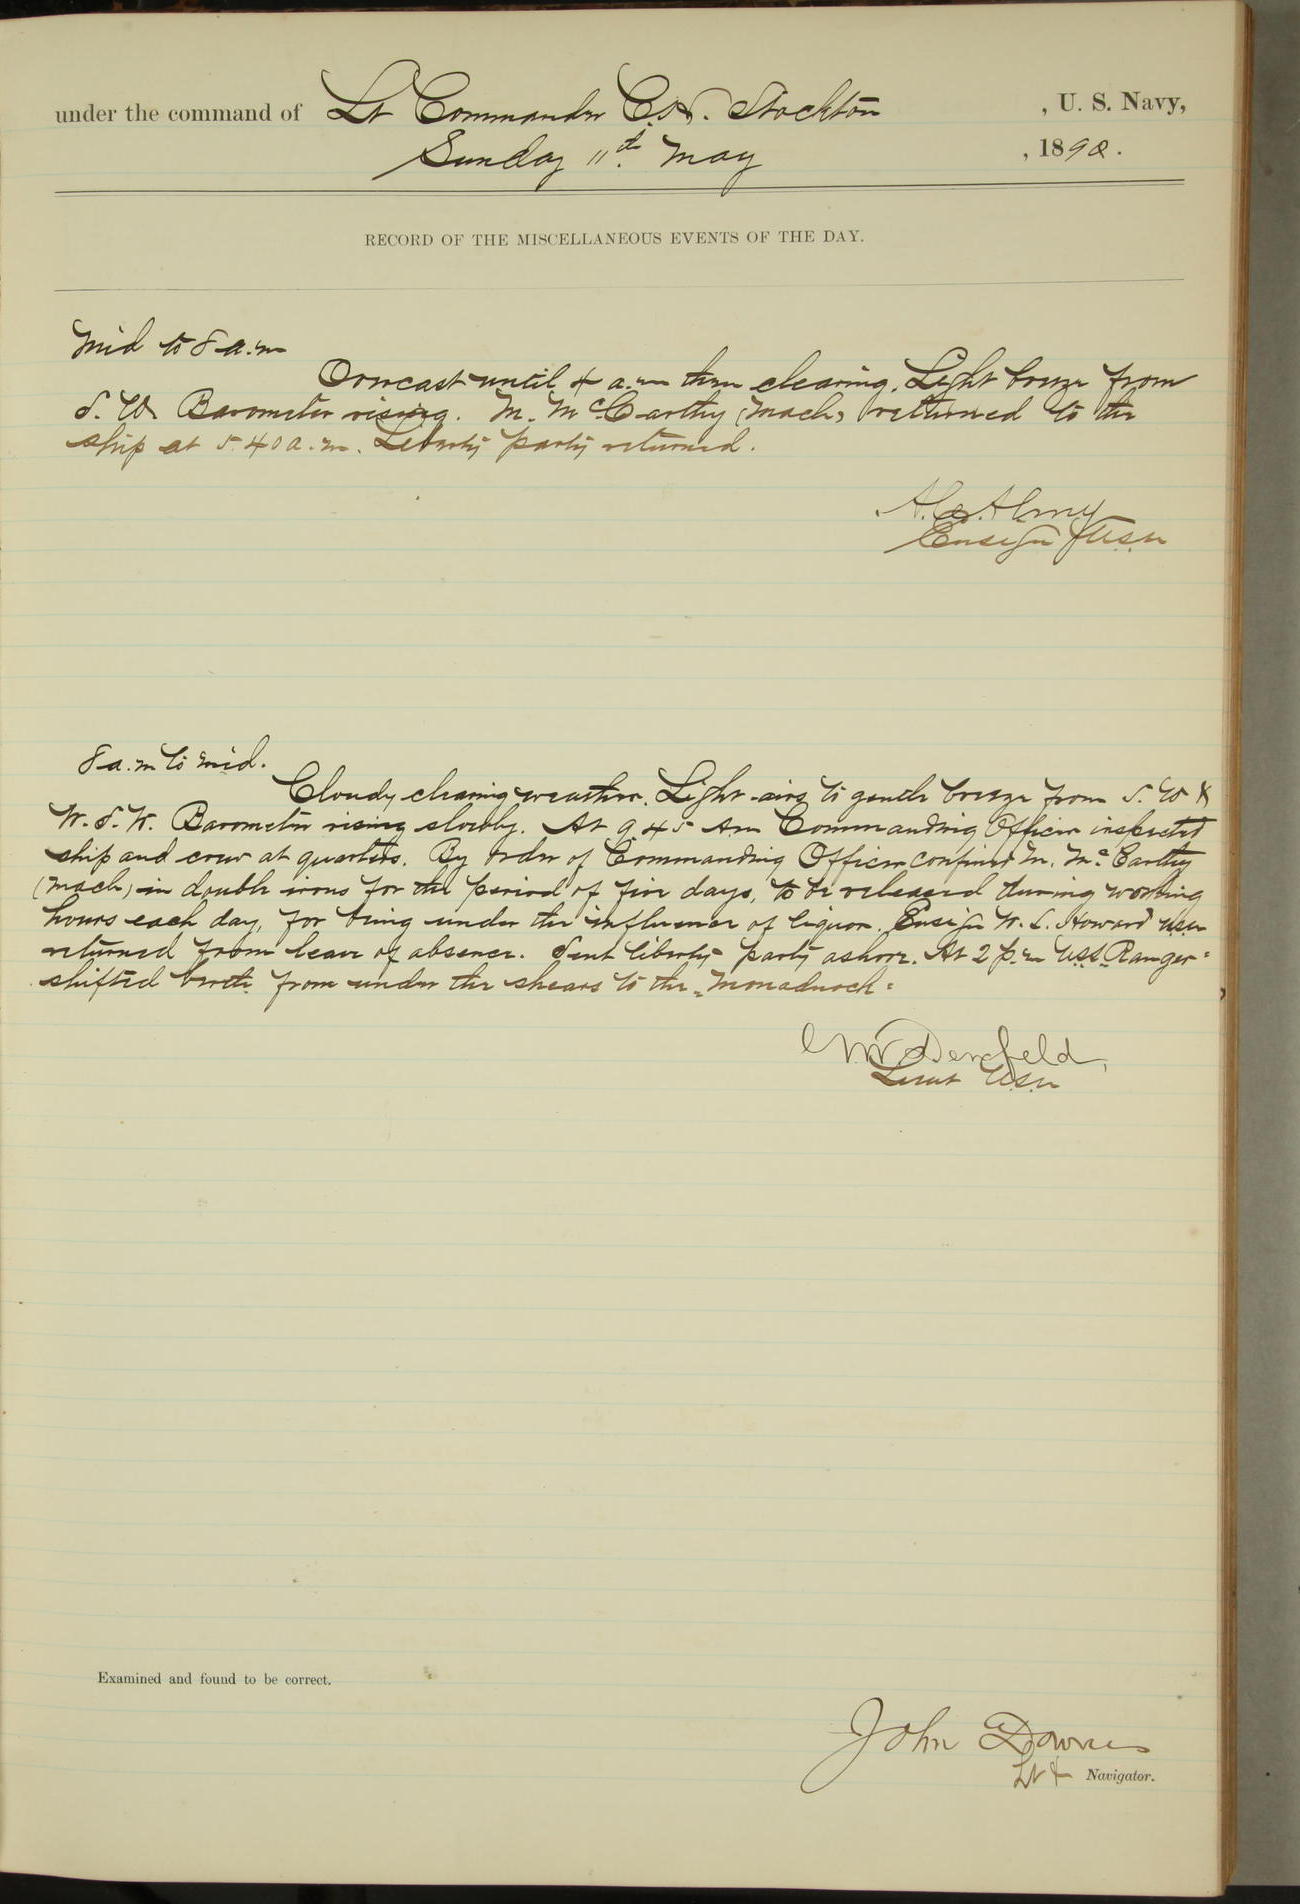 under the command of Lt Commander C. H. Stockton , U. S. Navy,
Sunday 11th. May , 1890.
RECORD OF THE MISCELLANEOUS EVENTS OF THE DAY.
Mid to 8 a.m
Overcast until 4 a.m then clearing. Light breeze from
S. W. Barometer rising. M. McCarthy (Mach) returned to the
ship at 5.40 a.m. Liberty party returned.
A. C. Almy
Ensign USN
8 a.m to mid.
Cloudy clearing weather. Light airs to gentle breeze from S. W &
W. S. W. Barometer rising slowly. At 9.45 Am Commanding Officer inspected
ship and crew at quarters. By order of Commanding Officer confined M. McCarthy
(Mach) in double irons for the period of five days, to be released during working
hours each day, for being under the influence of liquor. Ensign W. L. Howard USN
returned from leave of absence. Sent liberty party ashore. At 2 p.m USS "Ranger"
shifted berth from under the shears to the "Monadnock"
Denfeld
Lieut USN
Examined and found to be correct.
John Downes
Lt & Navigator.